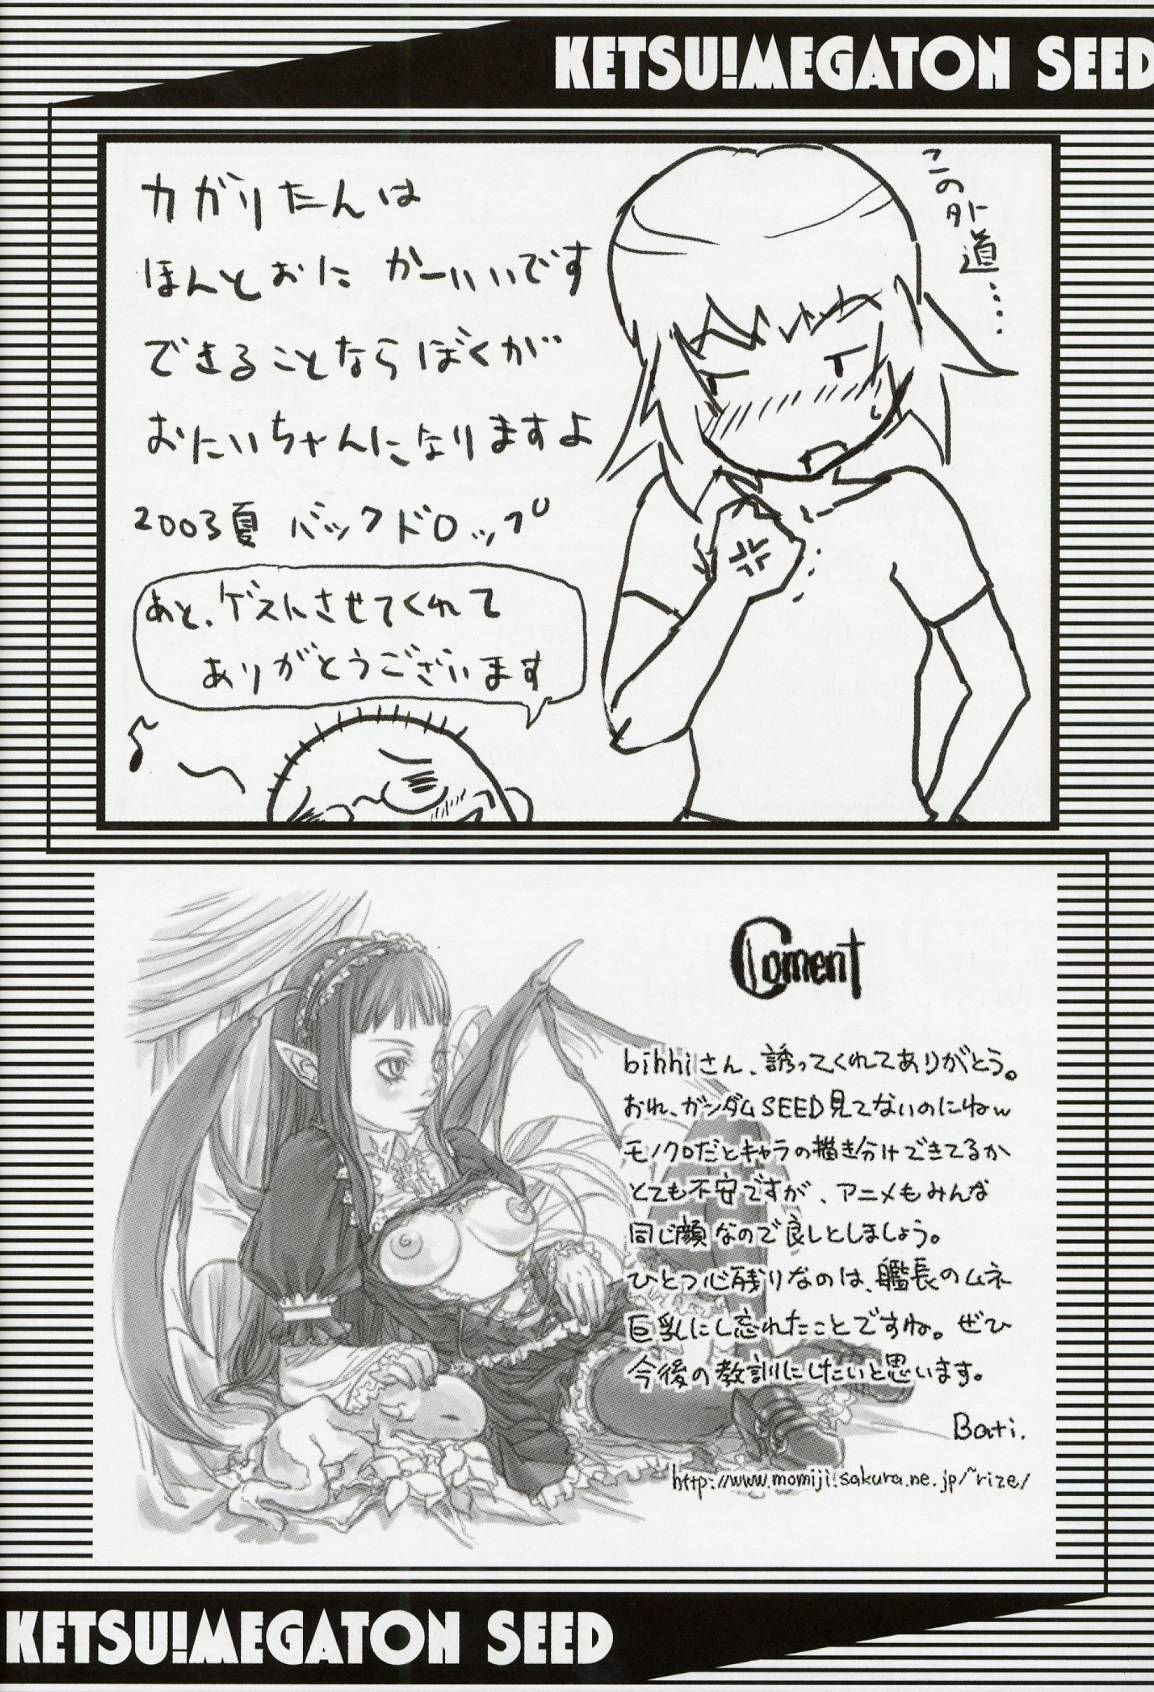 KETSU!MEGATON SEED
この外道....
カガリたんは
ほんとおに かーいいです
できることならぼくが
おにいちゃんになりますよ
2003夏 バックドロップ
あと、ゲスにさせてくれて
ありがとうございます
Coment
bihhiさん、誘ってくれてありがとう。
おれ、ガンダムSEED見てないのにねw
モノクロだとキャラの描き分けできてるか
とても不安ですが、アニメもみんな
同じ顔なので良しとしましょう。
ひとつ心残りなのは、艦長のムネ
巨乳にし忘れたことですね。ぜひ
今後の教訓にしたいと思います。
Bati.
http://www.momiji.sakura.ne.jp/~rize/
KETSU!MEGATON SEED